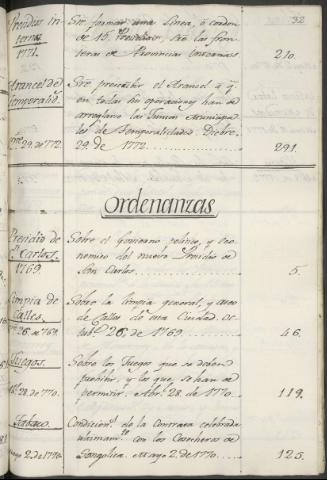 32
Presidios In-
ternos
1771.
Sre formar una Linea, o cordon
de 15. Presidios, en las fron-
teras de Provincias internas
210.
Arancel de
Temporalid.
29. de 1772.
Sre prescribir el Arancel a q.
en todas sus operaciones han de
arreglarse las Juntas Municipa-
les de Temporalidades. Dizbre.
29 de 1772
291.
Ordenanzas
Presidio de
S. Carlos.
1769.
Sobre el Govierno politico, y eco-
nomico del nuevo Presidio de
San Carlos
5.
Limpia de
Calles.
26. de 1769.
Sobre la limpia general, y aseo
de Calles de esta Ciudad. Oc-
tub. 26. de 1769.
46.
Juegos.
28. de 1770.
Sobre los Juegos que se deben
prohibir, y los que se han de
permitir. Abr. 28. de 1770.
119.
Tabaco.
Mayo 2. de 1770.
Condicion.s de la Contrata celebrada
con los Cosecheros de
Songolica. Mayo 2. de 1770.
125.